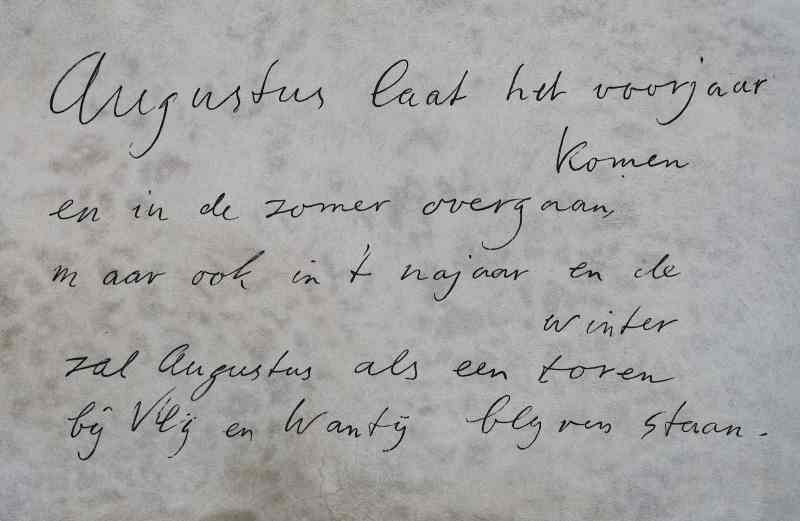 Augustus laat het voorjaar
komen
en in de zomer overgaan,
maar ook in 't najaar en de
winter
zal Augustus als een toren
bij Vlij en Wantij blijven staan.